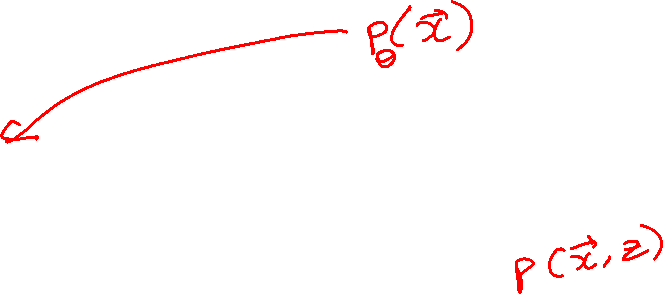 p_θ(x⃗)
p(x⃗, z)